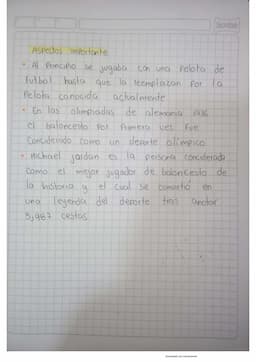 Aspectos importante
• Al Principio se jugaba con una Pelota de
futbol hasta que la reemplazan Por la
Pelota conocida actualmente
• En las olimpiadas de alemania 1936
el baloncesto Por Primera ves fue
Considerado como un deporte olimpico
• Michael jardan es la persona considerada
como el mejor jugador de baloncesto de
la historia y el cual se convirtió en
una leyenda del deporte tras anotar
5,987 cestas